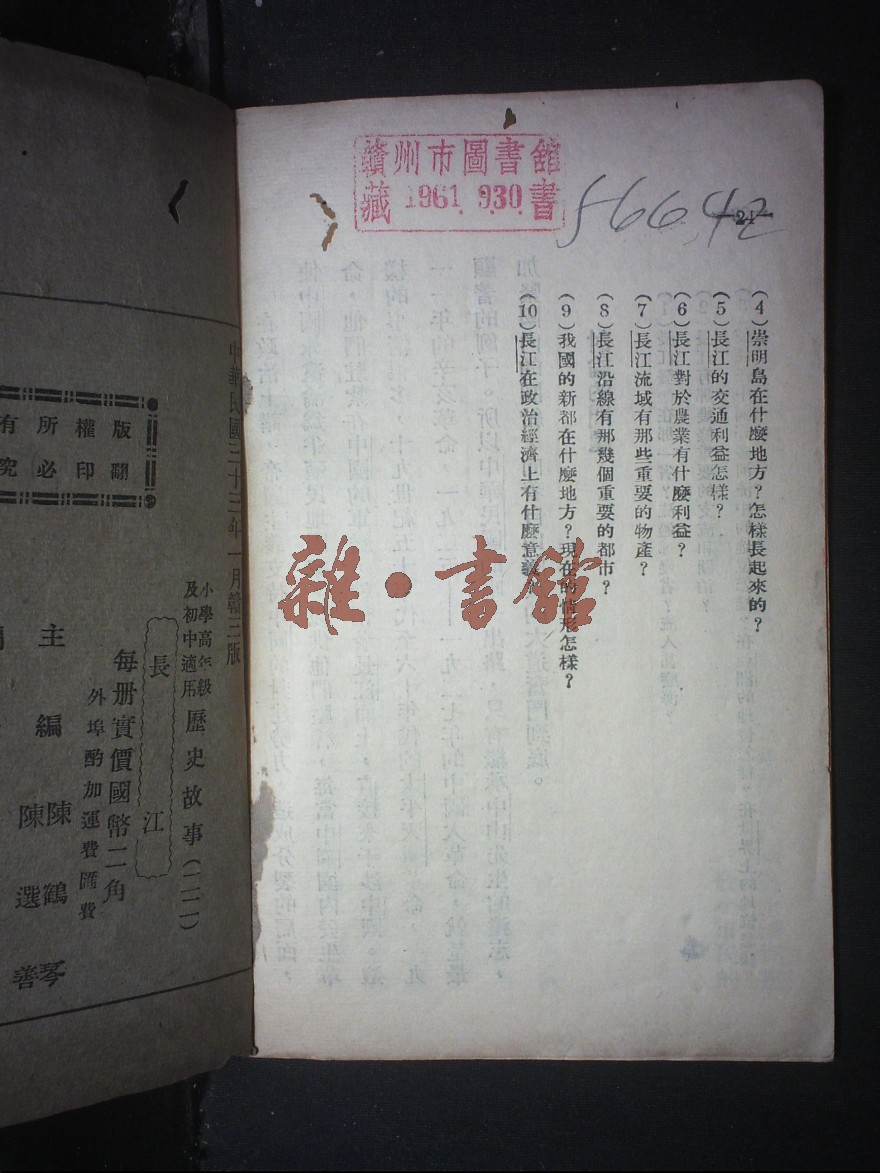 贛州市圖書館
藏 1961.9.30. 書
566.42
—24—
(4)崇明島在什麼地方？怎樣長起來的？
(5)長江的交通利益怎樣？
(6)長江對於農業有什麼利益？
(7)長江流域有那些重要的物產？
(8)長江沿線有那幾個重要的都市？
(9)我國的新都在什麼地方？現在的情形怎樣？
(10)長江在政治經濟上有什麼意義
雜·書館
中華民國三十三年一月贛三版
小學高年級
及初中適用
歷史故事(二二一)
長江
每册實價國幣二角
外埠酌加運費匯費
主編 陳鶴琴
陳選善
版權所有
翻印必究